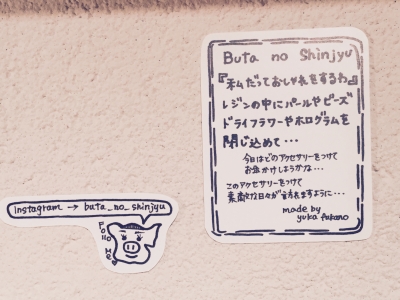 Buta no Shinjyu
『私だっておしゃれをするわ』
レジンの中にパールやビーズ
ドライフラワーやホログラムを
閉じ込めて・・・
今日はどのアクセサリーをつけて
お出かけしようかな・・・
このアクセサリーをつけて
素敵な日々が訪れますように・・・
made by
yuka fukano
instagram → buta_no_shinjyu
Follow
Me